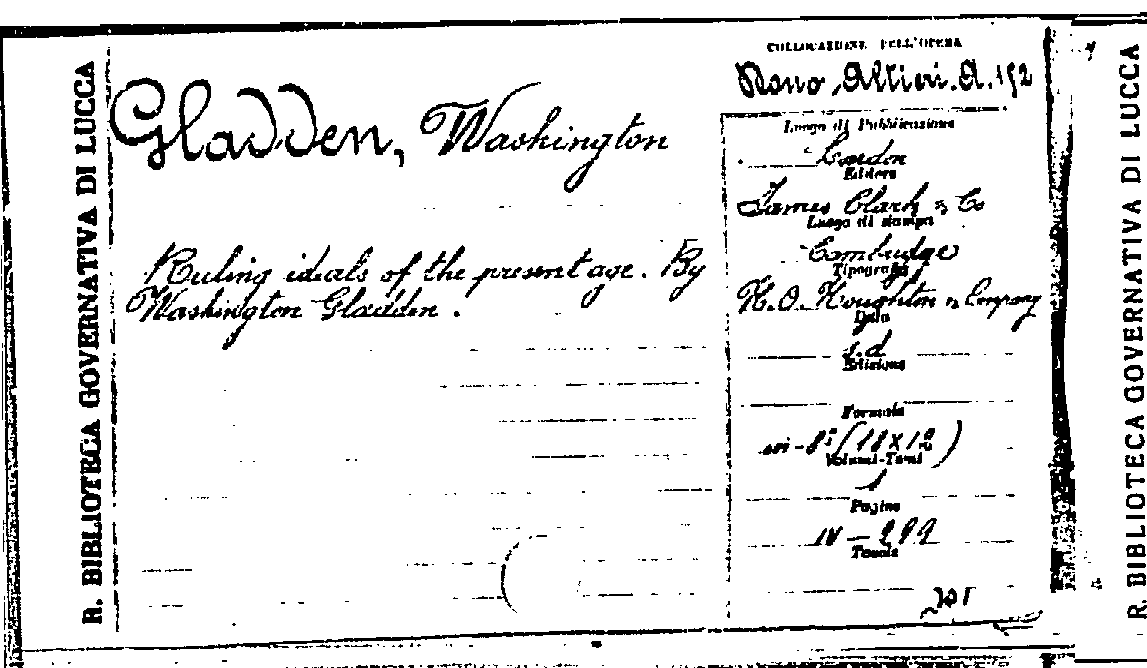 R. BIBLIOTECA GOVERNATIVA DI LUCCA
COLLOCAZIONE DELL'OPERA
Dono Altieri. A. 152
Gladden, Washington
Ruling ideals of the present age. By
Washington Gladden.
Luogo di Pubblicazione
London
Editore
James Clark & Co
Luogo di stampa
Cambridge
Tipografia
H. O. Houghton & Company
Data
s.d
Edizione
Formato
in-8º (18x12)
Volumi-Tomi
1
Pagine
IV-299
Tavole
R. BIBLIOTECA GOVERNATIVA DI LUCCA